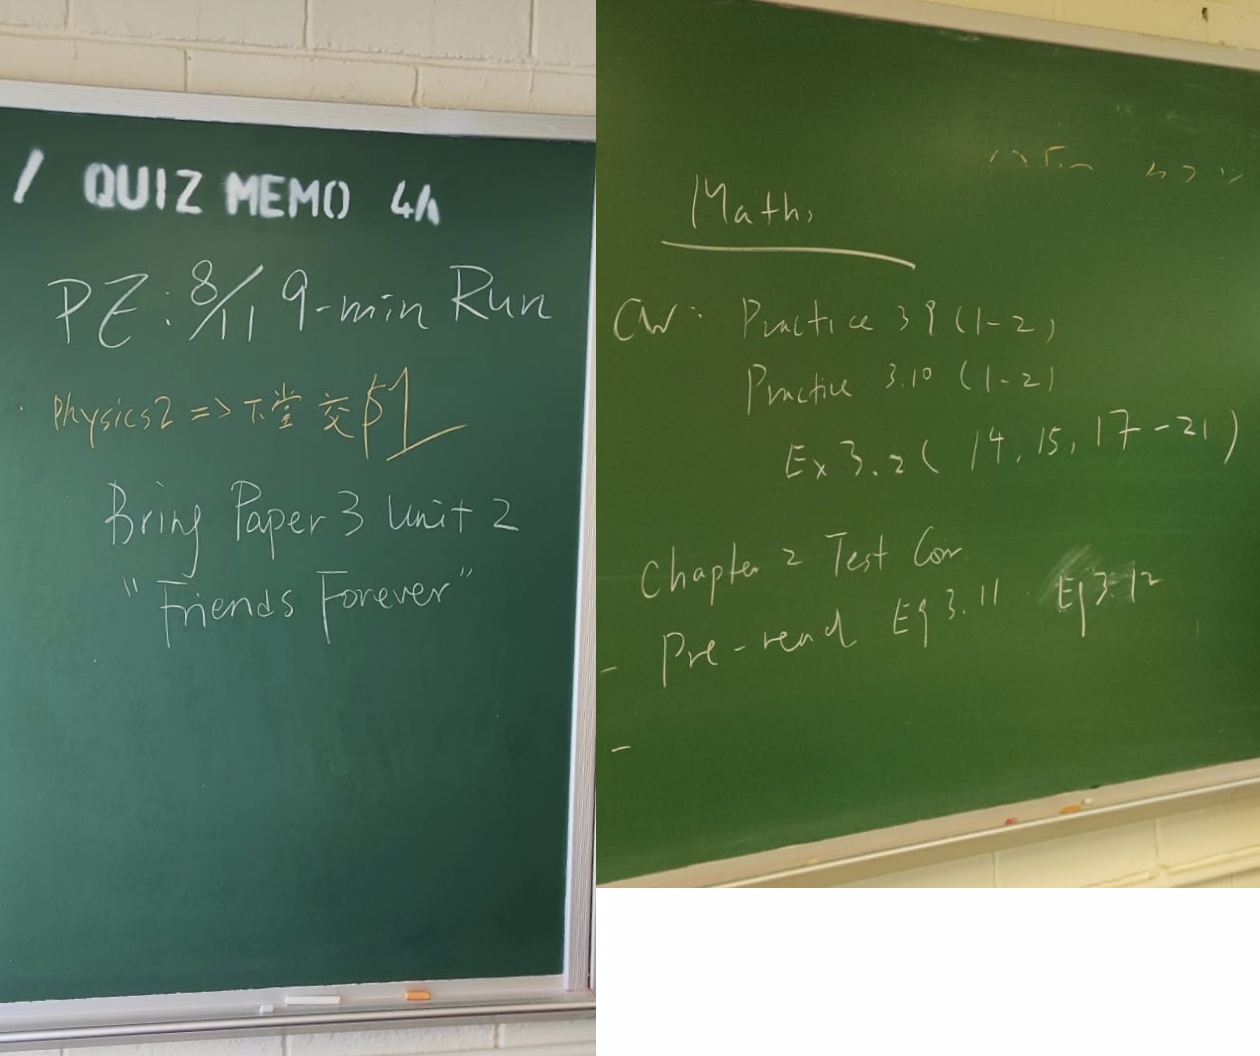 / QUIZ MEMO 4A
PE: 8/11 9-min Run
Physics2 => 下堂交 $1
Bring Paper 3 Unit 2
"Friends Forever"
Maths
CW: Practice 3.9 (1-2)
Practice 3.10 (1-2)
Ex 3.2 (14, 15, 17-21)
Chapter 2 Test Corr
- Pre-read Eg 3.11 Eg 3.12
-